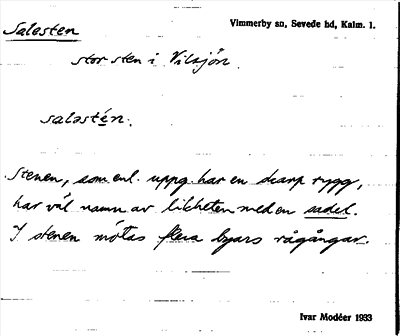 Salesten
Vimmerby sn, Sevede hd, Kalm. l.
stor sten i Vilsjön.
saləstén.
Stenen, som enl. uppg. har en skarp rygg,
har väl namn av likheten med en sadel.
I stenen mötas flera byars rågångar.
Ivar Modéer 1933